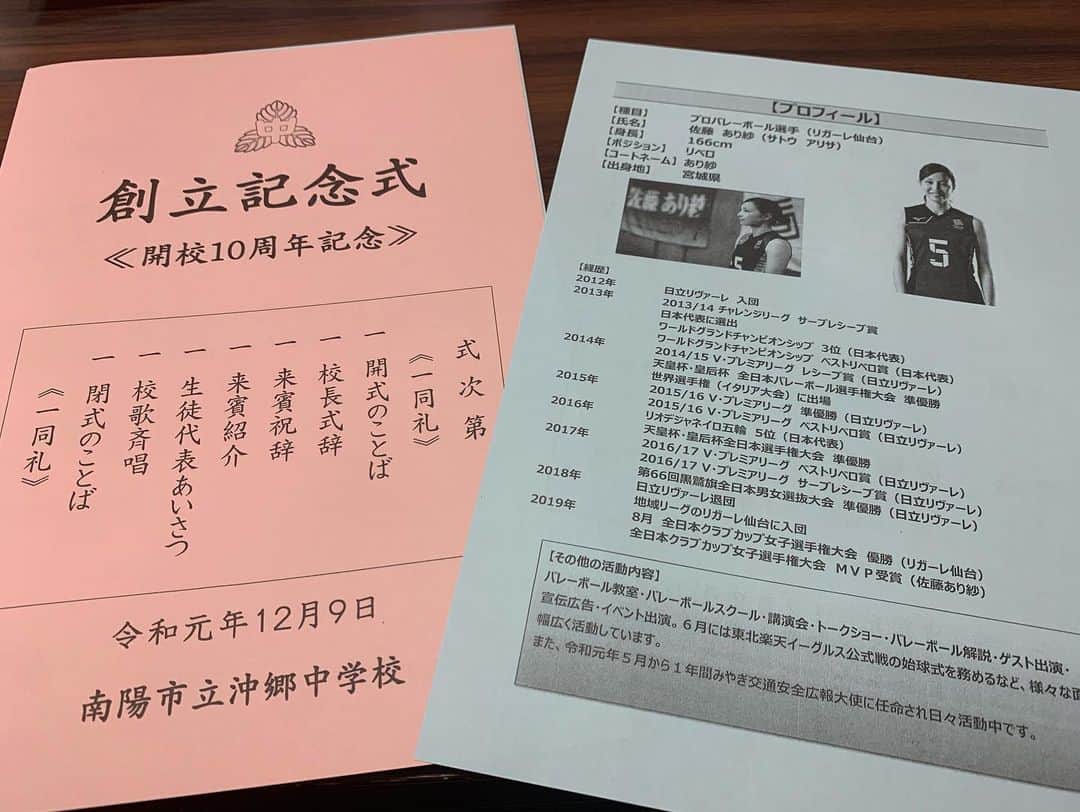 創立記念式
≪開校10周年記念≫
式次第
《一同礼》
一 開式のことば
一 校長式辞
一 来賓祝辞
一 来賓紹介
一 生徒代表あいさつ
一 校歌斉唱
一 閉式のことば
《一同礼》
令和元年12月9日
南陽市立沖郷中学校
【プロフィール】
【種目】 プロバレーボール選手（リガーレ仙台）
【氏名】 佐藤 あり紗（サトウ アリサ）
【身長】 166cm
【ポジション】 リベロ
【コートネーム】 あり紗
【出身地】 宮城県
佐藤あり紗
5
5
【経歴】
2012年 日立リヴァーレ 入団
2013年 2013/14 チャレンジリーグ サーブレシーブ賞
日本代表に選出
ワールドグランドチャンピオンシップ 3位（日本代表）
ワールドグランドチャンピオンシップ ベストリベロ賞（日本代表）
2014年 2014/15 V・プレミアリーグ レシーブ賞（日立リヴァーレ）
天皇杯・皇后杯 全日本バレーボール選手権大会 準優勝
世界選手権（イタリア大会）に出場
2015年 2015/16 V・プレミアリーグ 準優勝（日立リヴァーレ）
2015/16 V・プレミアリーグ ベストリベロ賞（日立リヴァーレ）
2016年 リオデジャネイロ五輪 5位（日本代表）
天皇杯・皇后杯全日本選手権大会 準優勝
2017年 2016/17 V・プレミアリーグ ベストリベロ賞（日立リヴァーレ）
2016/17 V・プレミアリーグ サーブレシーブ賞（日立リヴァーレ）
第66回黒鷲旗全日本男女選抜大会 準優勝（日立リヴァーレ）
2018年 日立リヴァーレ退団
地域リーグのリガーレ仙台に入団
2019年 8月 全日本クラブカップ女子選手権大会 優勝（リガーレ仙台）
全日本クラブカップ女子選手権大会 MVP受賞（佐藤あり紗）
【その他の活動内容】
バレーボール教室・バレーボールスクール・講演会・トークショー・バレーボール解説・ゲスト出演・
宣伝広告・イベント出演。6月には東北楽天イーグルス公式戦の始球式を務めるなど、様々な
幅広く活動しています。
また、令和元年5月から1年間みやぎ交通安全広報大使に任命され日々活動中です。